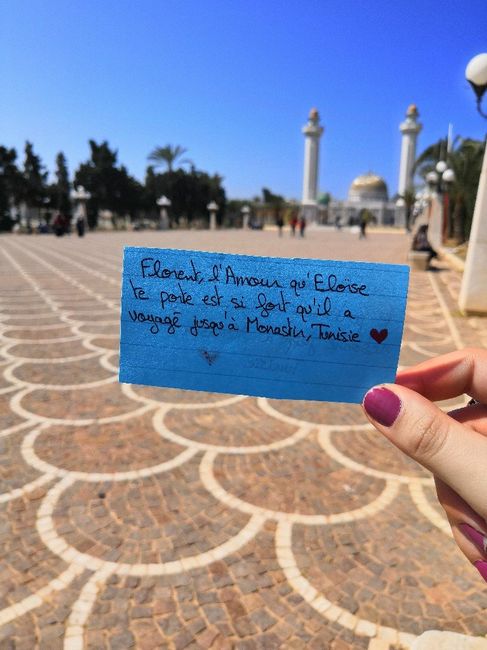 Florent, l'Amour qu'Eloïse
te porte est si fort qu'il a
voyagé jusqu'à Monastir, Tunisie ♥